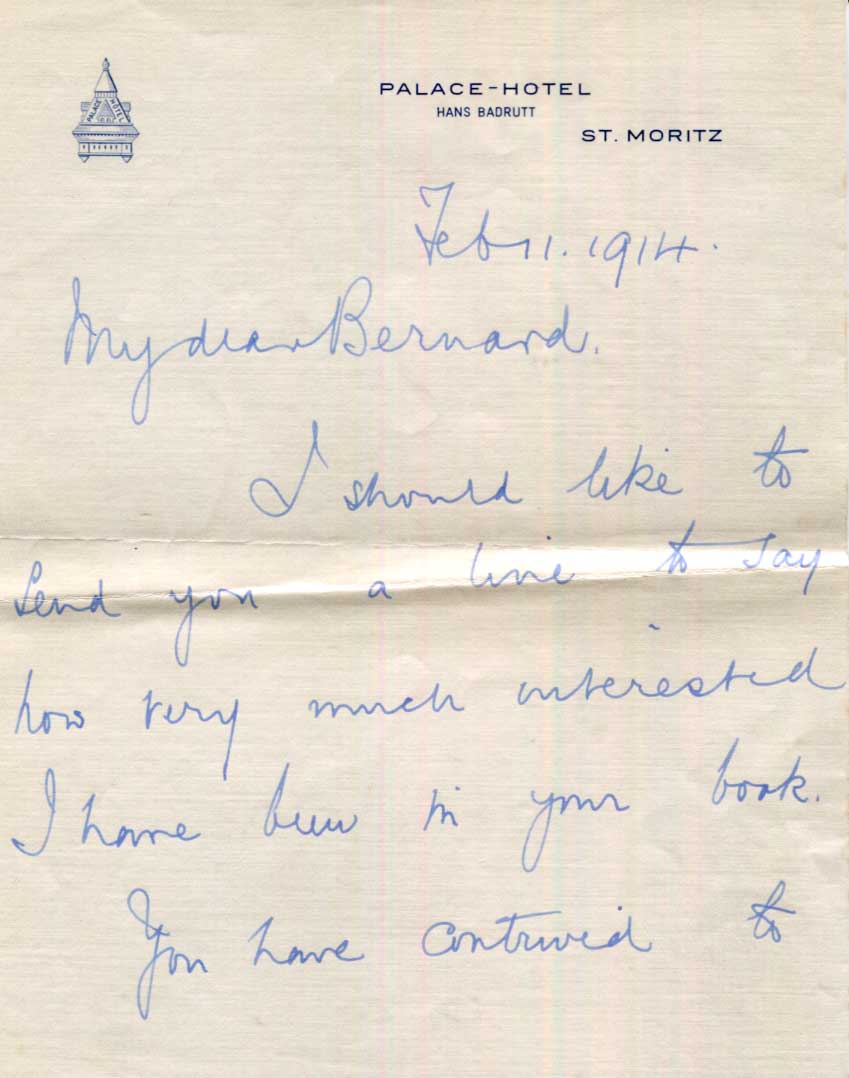 PALACE HOTEL
PALACE-HOTEL
HANS BADRUTT
ST. MORITZ
Feb 11. 1914.
My dear Bernard.
I should like to
send you a line to say
how very much interested
I have been in your book.
You have contrived to